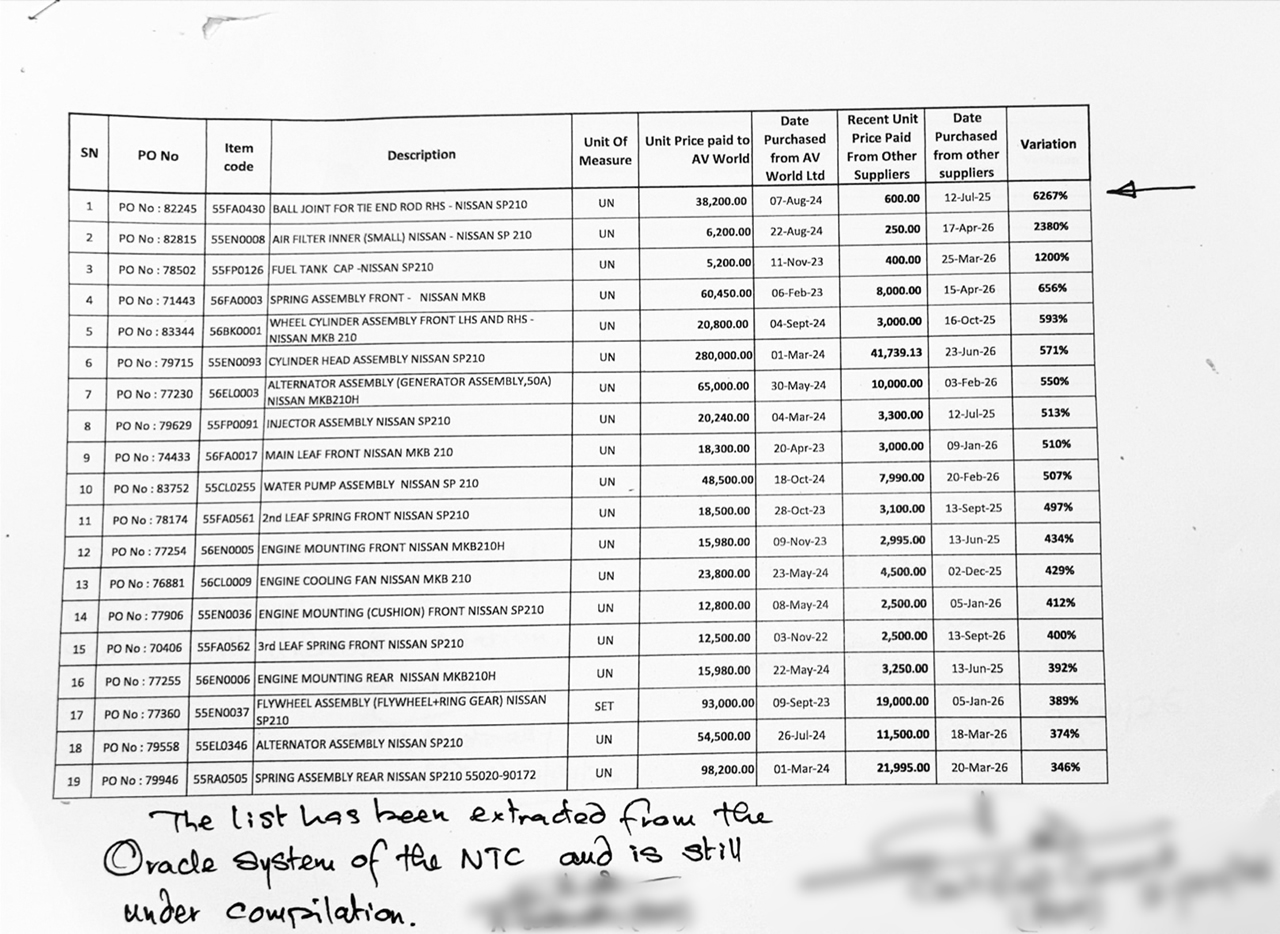 SN PO No Item code Description Unit Of Measure Unit Price paid to AV World Date Purchased from AV World Ltd Recent Unit Price Paid From Other Suppliers Date Purchased from other suppliers Variation
1 PO No : 82245 55FA0430 BALL JOINT FOR TIE END ROD RHS - NISSAN SP210 UN 38,200.00 07-Aug-24 600.00 12-Jul-25 6267%
2 PO No : 82815 55EN0008 AIR FILTER INNER (SMALL) NISSAN - NISSAN SP 210 UN 6,200.00 22-Aug-24 250.00 17-Apr-26 2380%
3 PO No : 78502 55FP0126 FUEL TANK CAP -NISSAN SP210 UN 5,200.00 11-Nov-23 400.00 25-Mar-26 1200%
4 PO No : 71443 56FA0003 SPRING ASSEMBLY FRONT - NISSAN MKB UN 60,450.00 06-Feb-23 8,000.00 15-Apr-26 656%
5 PO No : 83344 56BK0001 WHEEL CYLINDER ASSEMBLY FRONT LHS AND RHS - NISSAN MKB 210 UN 20,800.00 04-Sept-24 3,000.00 16-Oct-25 593%
6 PO No : 79715 55EN0093 CYLINDER HEAD ASSEMBLY NISSAN SP210 UN 280,000.00 01-Mar-24 41,739.13 23-Jun-26 571%
7 PO No : 77230 56EL0003 ALTERNATOR ASSEMBLY (GENERATOR ASSEMBLY,50A) NISSAN MKB210H UN 65,000.00 30-May-24 10,000.00 03-Feb-26 550%
8 PO No : 79629 55FP0091 INJECTOR ASSEMBLY NISSAN SP210 UN 20,240.00 04-Mar-24 3,300.00 12-Jul-25 513%
9 PO No : 74433 56FA0017 MAIN LEAF FRONT NISSAN MKB 210 UN 18,300.00 20-Apr-23 3,000.00 09-Jan-26 510%
10 PO No : 83752 55CL0255 WATER PUMP ASSEMBLY NISSAN SP 210 UN 48,500.00 18-Oct-24 7,990.00 20-Feb-26 507%
11 PO No : 78174 55FA0561 2nd LEAF SPRING FRONT NISSAN SP210 UN 18,500.00 28-Oct-23 3,100.00 13-Sept-25 497%
12 PO No : 77254 56EN0005 ENGINE MOUNTING FRONT NISSAN MKB210H UN 15,980.00 09-Nov-23 2,995.00 13-Jun-25 434%
13 PO No : 76881 56CL0009 ENGINE COOLING FAN NISSAN MKB 210 UN 23,800.00 23-May-24 4,500.00 02-Dec-25 429%
14 PO No : 77906 55EN0036 ENGINE MOUNTING (CUSHION) FRONT NISSAN SP210 UN 12,800.00 08-May-24 2,500.00 05-Jan-26 412%
15 PO No : 70406 55FA0562 3rd LEAF SPRING FRONT NISSAN SP210 UN 12,500.00 03-Nov-22 2,500.00 13-Sept-26 400%
16 PO No : 77255 56EN0006 ENGINE MOUNTING REAR NISSAN MKB210H UN 15,980.00 22-May-24 3,250.00 13-Jun-25 392%
17 PO No : 77360 55EN0037 FLYWHEEL ASSEMBLY (FLYWHEEL+RING GEAR) NISSAN SP210 SET 93,000.00 09-Sept-23 19,000.00 05-Jan-26 389%
18 PO No : 79558 55EL0346 ALTERNATOR ASSEMBLY NISSAN SP210 UN 54,500.00 26-Jul-24 11,500.00 18-Mar-26 374%
19 PO No : 79946 55RA0505 SPRING ASSEMBLY REAR NISSAN SP210 55020-90172 UN 98,200.00 01-Mar-24 21,995.00 20-Mar-26 346%
The list has been extracted from the
Oracle system of the NTC and is still
under compilation.